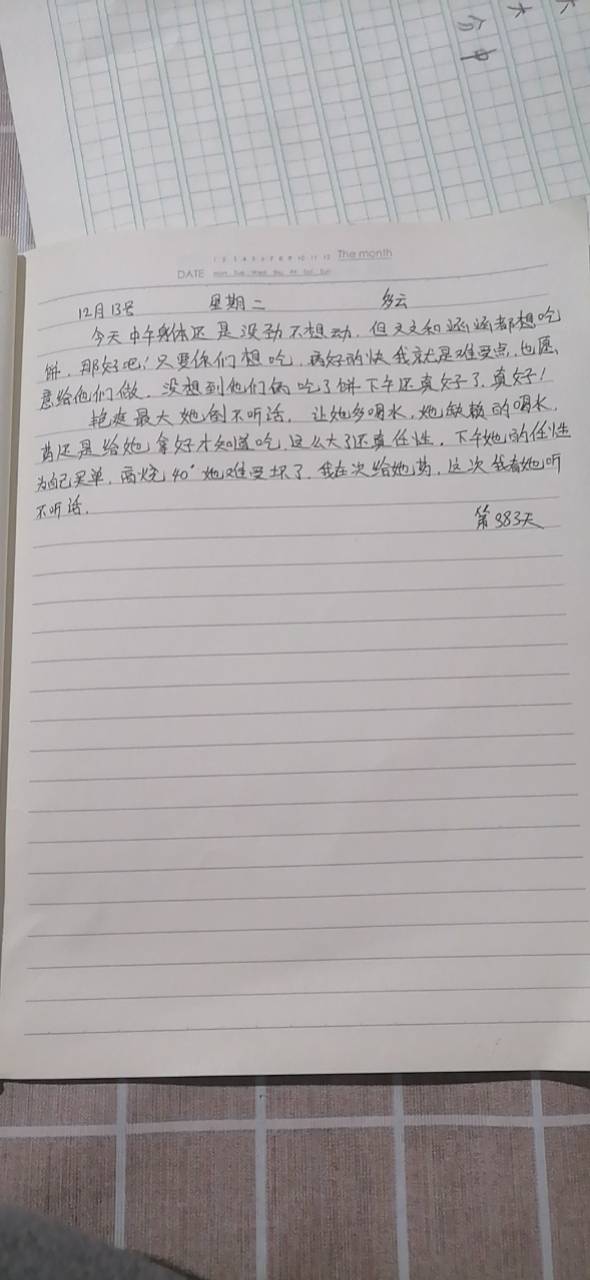 大
合 中
1 2 3 4 5 6 7 8 9 10 11 12 The month
DATE Mon Tue Wed Thu Fri Sat Sun
12月13号 星期二 多云
今天中午身体还是没劲不想动,但文文和涵涵都想吃
饼,那好吧!只要你们想吃,病好的快我就是难受点,也愿
意给他们做,没想到他们俩吃了饼下午还真好了,真好!
艳爽最大她倒不听话,让她多喝水,她敏赖的喝水,
药还是给她拿好才知道吃,这么大了还真任性,下午她的任性
为自己买单,高烧40°她难受坏了,我在次给她药,这次我看她听
不听话.
第383天